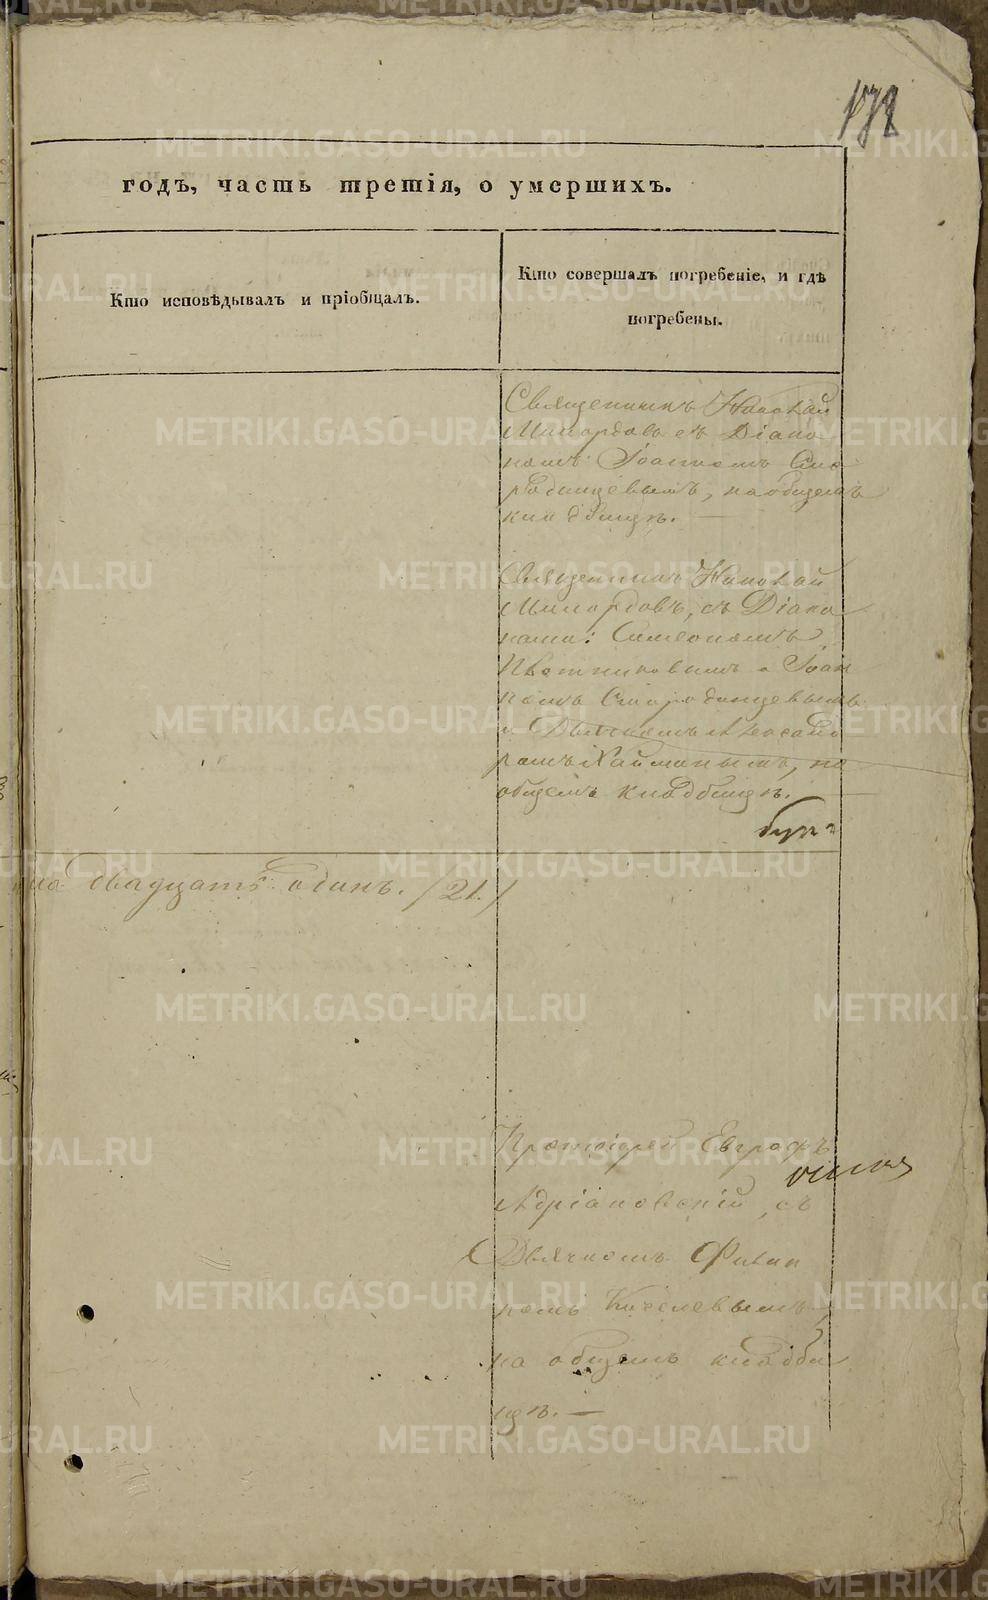 годъ, часть третія, о умершихъ.
Кто исповѣдывалъ и пріобщалъ.
Кто совершалъ погребеніе, и гдѣ
погребены.
Священникъ Николай
съ Діако
номъ Іоанномъ Смо
родинцевымъ, на общемъ
кладбищѣ. —
Священникъ Николай
съ Діако
нами: Симеономъ
Плотниковымъ и Іоан
номъ Смородинцевымъ
и Дьячкомъ Александ
ромъ на
общемъ кладбищѣ. —
двадцать одинъ. /21./
Протоіерей Евграфъ
Адріановскій, съ
Дьячкомъ Филип
помъ Киселевымъ,
на общемъ кладби
щѣ. —
METRIKI.GASO-URAL.RU